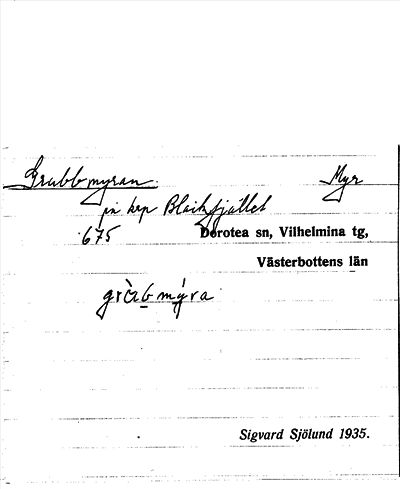 Grubbmyran. Myr
på krp Blaikfjället
675 Dorotea sn, Vilhelmina tg,
Västerbottens län
grùbmýra
Sigvard Sjölund 1935.